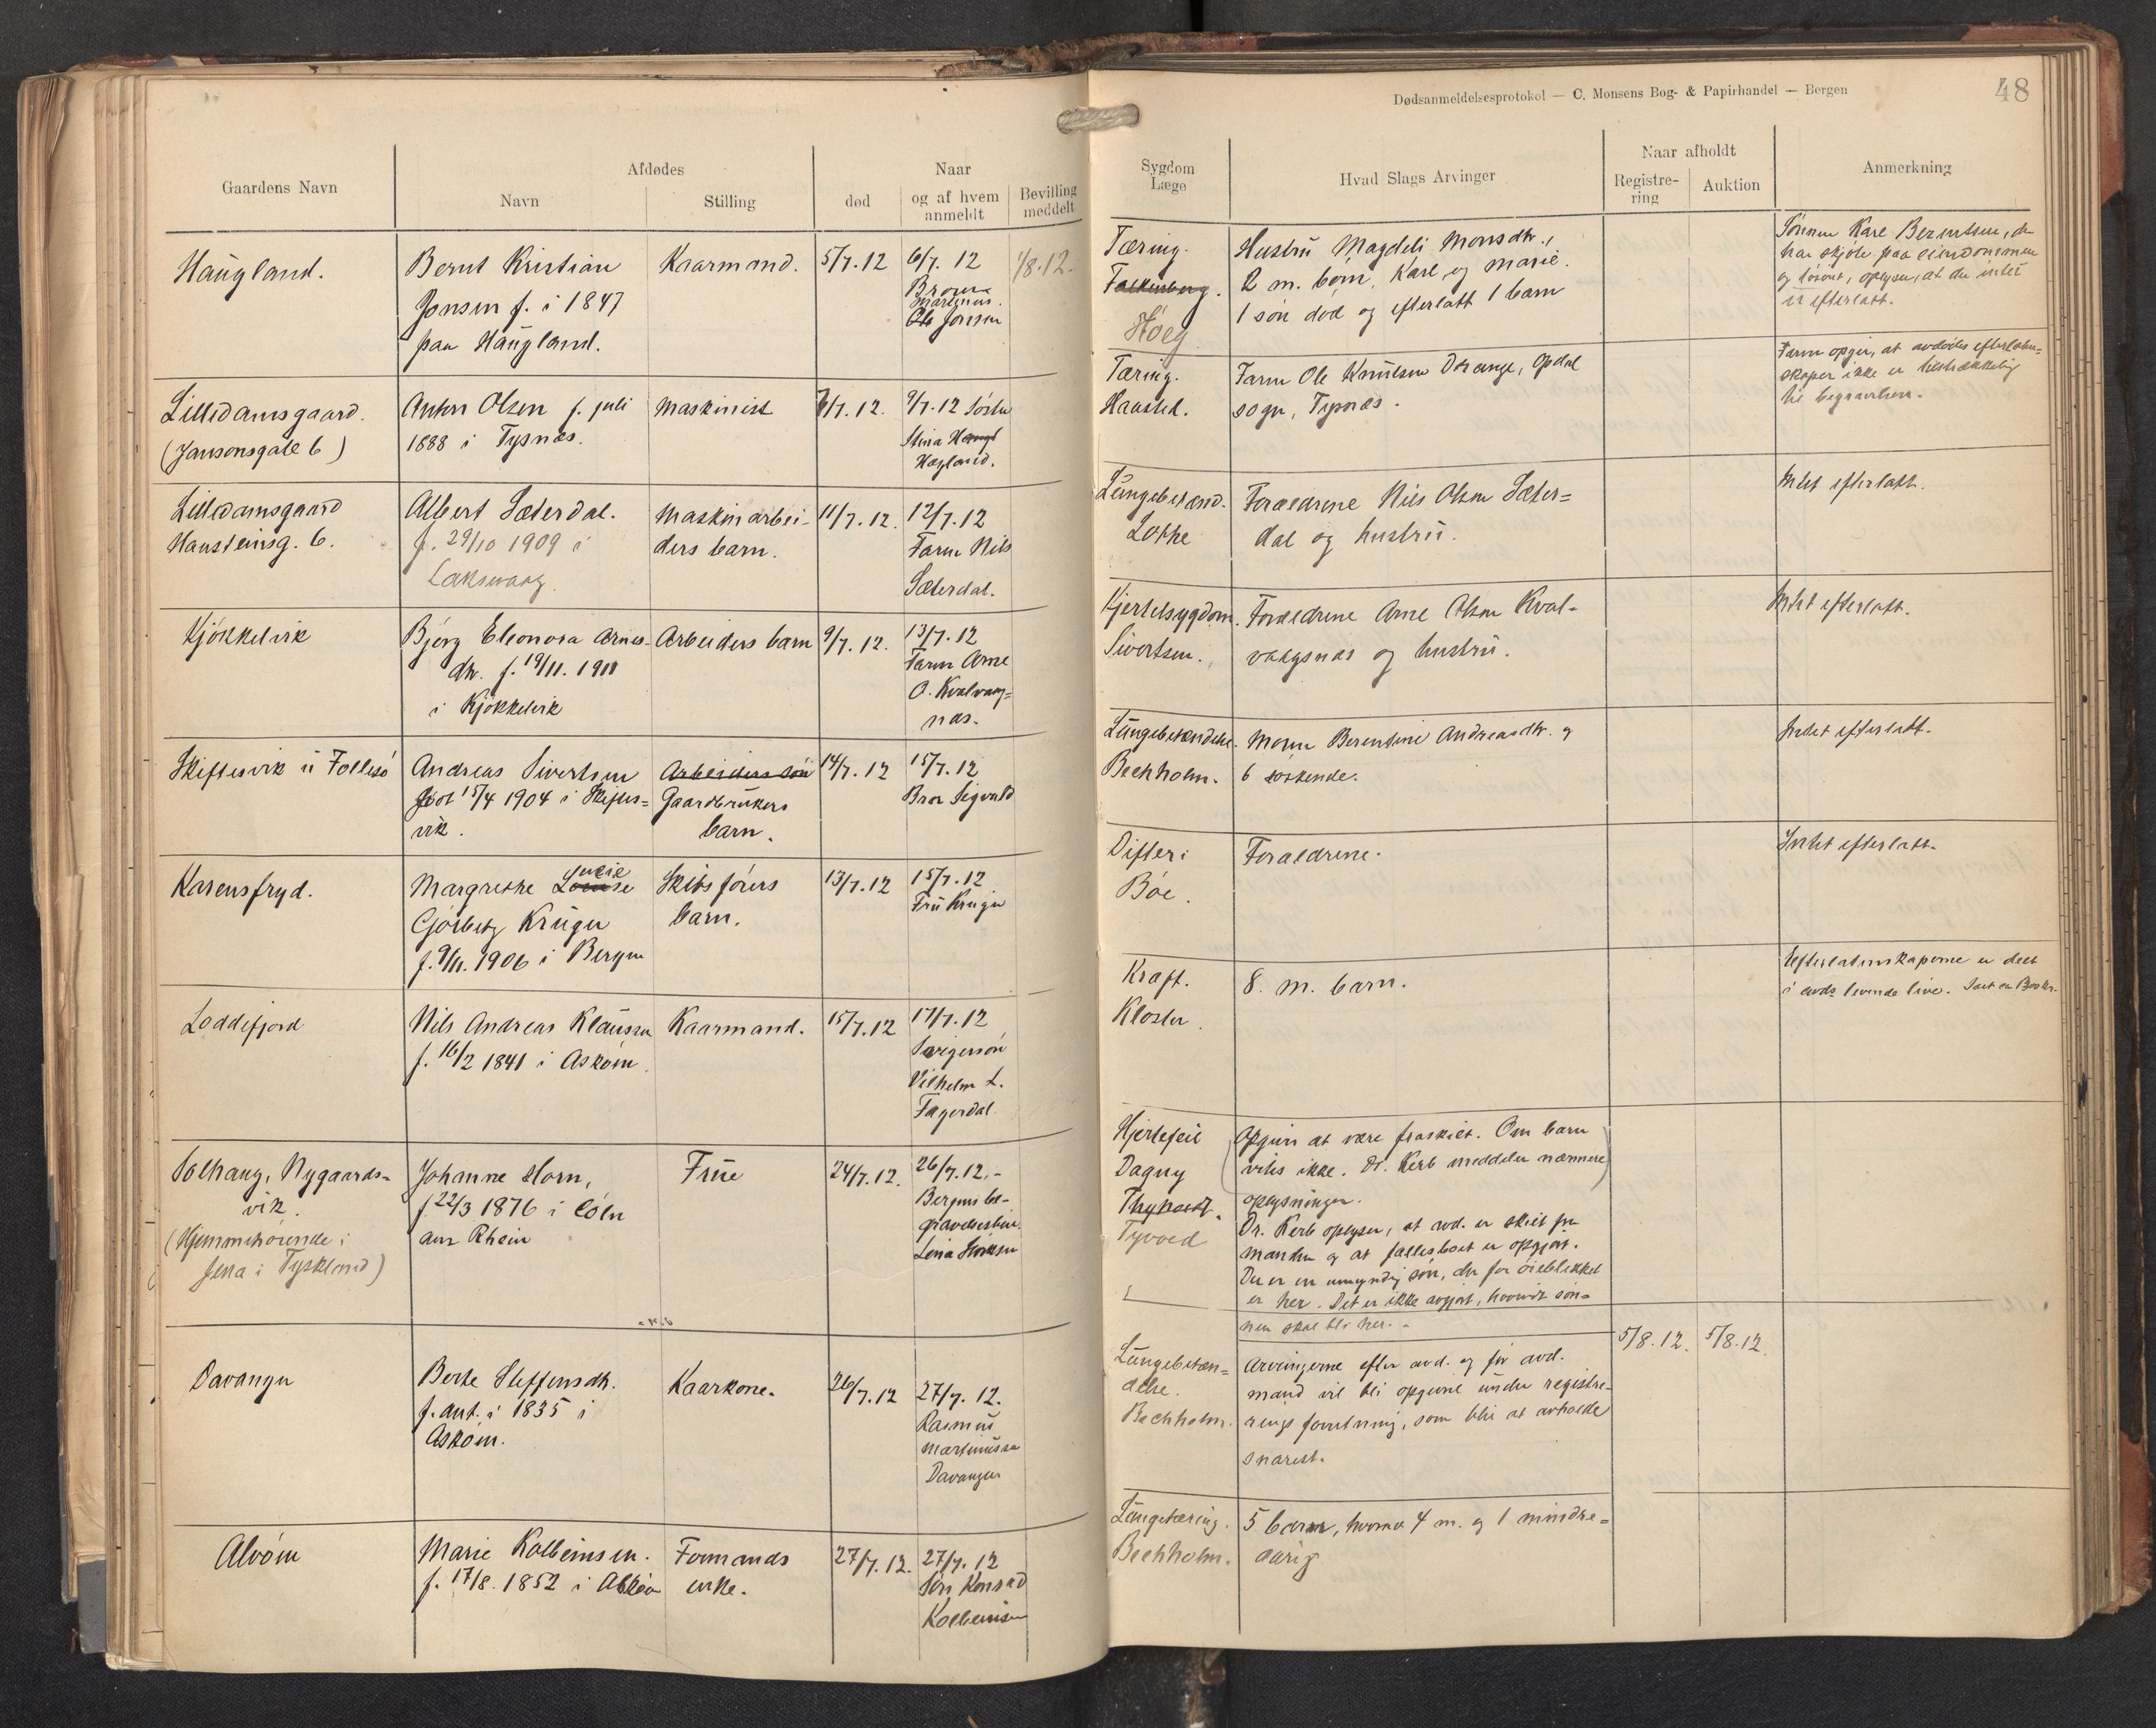 Dødsanmeldelsesprotokol — C. Monsens Bog- & Papirhandel — Bergen
48
Gaardens Navn
Afdødes
Navn
Stilling
død
Naar
og af hvem
anmeldt
Bevilling
meddelt
Haugland.
Bernt Kristian
Jonsen f. i 1847
paa Haugland.
Kaarmand.
5/7.12
6/7.12
Martinus
Ole Jonsen
1/8.12.
Lilledamsgaard.
(Jansonsgate 6)
Anton Olsen f. juli
1888 i Tysnæs.
Maskinist
9/7.12
Stina
Hagland.
Lilledamsgaard
Hansteinsg. 6.
Albert Sæterdal.
f. 29/10 1909 i
Laksevaag
Maskinarbei-
ders barn.
11/7.12.
12/7.12
Faren Nils
Sæterdal.
Kjøkkelvik
Bjerg Eleonora Arnes-
dtr. f. 19/11. 1911
i Kjøkkelvik
Arbeiders barn
9/7.12.
13/7.12
Faren Arne
O. Kvalvaag=
nas.
Skiftesvik i Follesø
Andreas Sivertsen
født 15/4 1904 i Skiftes=
vik.
Arbeiders søn
Gaardbrukers
barn.
14/7.12
15/7.12
Bror Sigvald
Karensfryd.
Margrethe Louise Lucie
Gjørbitz Krüger
f. 9/11. 1906 i Bergen
Skibsførers
barn.
13/7.12
15/7.12
Fru Krüger
Loddefjord
Nils Andreas Klausen
f. 16/2 1841 i Askøen.
Kaarmand.
15/7.12
17/7.12
Svigersøn
Vilhelm L.
Fagerdal
Solhaug, Nygaards=
vik.
(Hjemmehørende i
Jena i Tyskland)
Johanne Horn,
f 22/3 1876 i Cöln
am Rhein
Frue
24/7.12.
26/7.12.-
Bergens be-
gravelsesbur.
Davanger
Berte Steffensdtr.
f. ant. i 1835 i
Askøen.
Kaarkone.
26/7.12
27/7.12.
Rasmus
Martinussen
Davanger
Alvøen
Marie Kolbeinsen.
f. 17/8. 1852 i Askøen
Formands
enke.
27/7.12.
27/7.12
Søn Konrad
Kolbeinsen
Sygdom
Læge
Hvad Slags Arvinger
Naar afholdt
Registre-
ring
Auktion
Anmerkning
Tæring.
Falkenberg.
Høeg
Hustru Magdeli Monsdtr.,
2 m. børn, Karl og Marie.
1 søn død og efterlatt 1 barn
Sønnen Karl Berntsen, der
har skjøte paa eiendommen
og løsøret, oplyser, at der intet
er efterlatt.
Tæring.
Hansted.
Faren Ole Knutsen Drange, Opdal
sogn, Tysnæs.
Faren opgir, at avdødes efterladen=
skaper ikke er tilstrækkelig
til begravelsen.
Lungebetænd.
Lothe
Forældrene Nils Olsen Sæter=
dal og hustru.
Intet efterlatt.
Kjertelsygdom.
Sivertsen.
Forældrene Arne Olsen Kval-
vaagsnæs og hustru.
Intet efterlatt.
Lungebetændelse.
Bechholm.
Moren Berentine Andreasdtr. og
6 søskende.
Intet efterlatt.
Difteri
Bøe.
Forældrene.
Intet efterlatt.
Kræft.
Kloster.
8 m. barn.
Efterlatenskaperne er delt
i avds levende live.
Hjertefeil
Dagny
Tyvoed
(Opgives at være fraskilt. Om barn
vites ikke. Dr. Kerb meddeler nærmere)
oplysninger.
Dr. Kerb oplyser, at avd. er skilt fra
manden og at fællesboet er opgjort.
Der er en umyndig søn, der for øieblikket
er her. Det er ikke avgjort, hvorvidt søn=
nen skal bli her.
Lungebetæn=
delse.
Bechholm.
Arvingerne efter avd. og før avd.
mand vil bli opgivne under registre-
rings forretning, som blir at avholde
snarest.
5/8.12.
5/8.12.
Lungetæring.
Bechholm.
5 barn, hvorav 4 m. og 1 mindre=
aarig